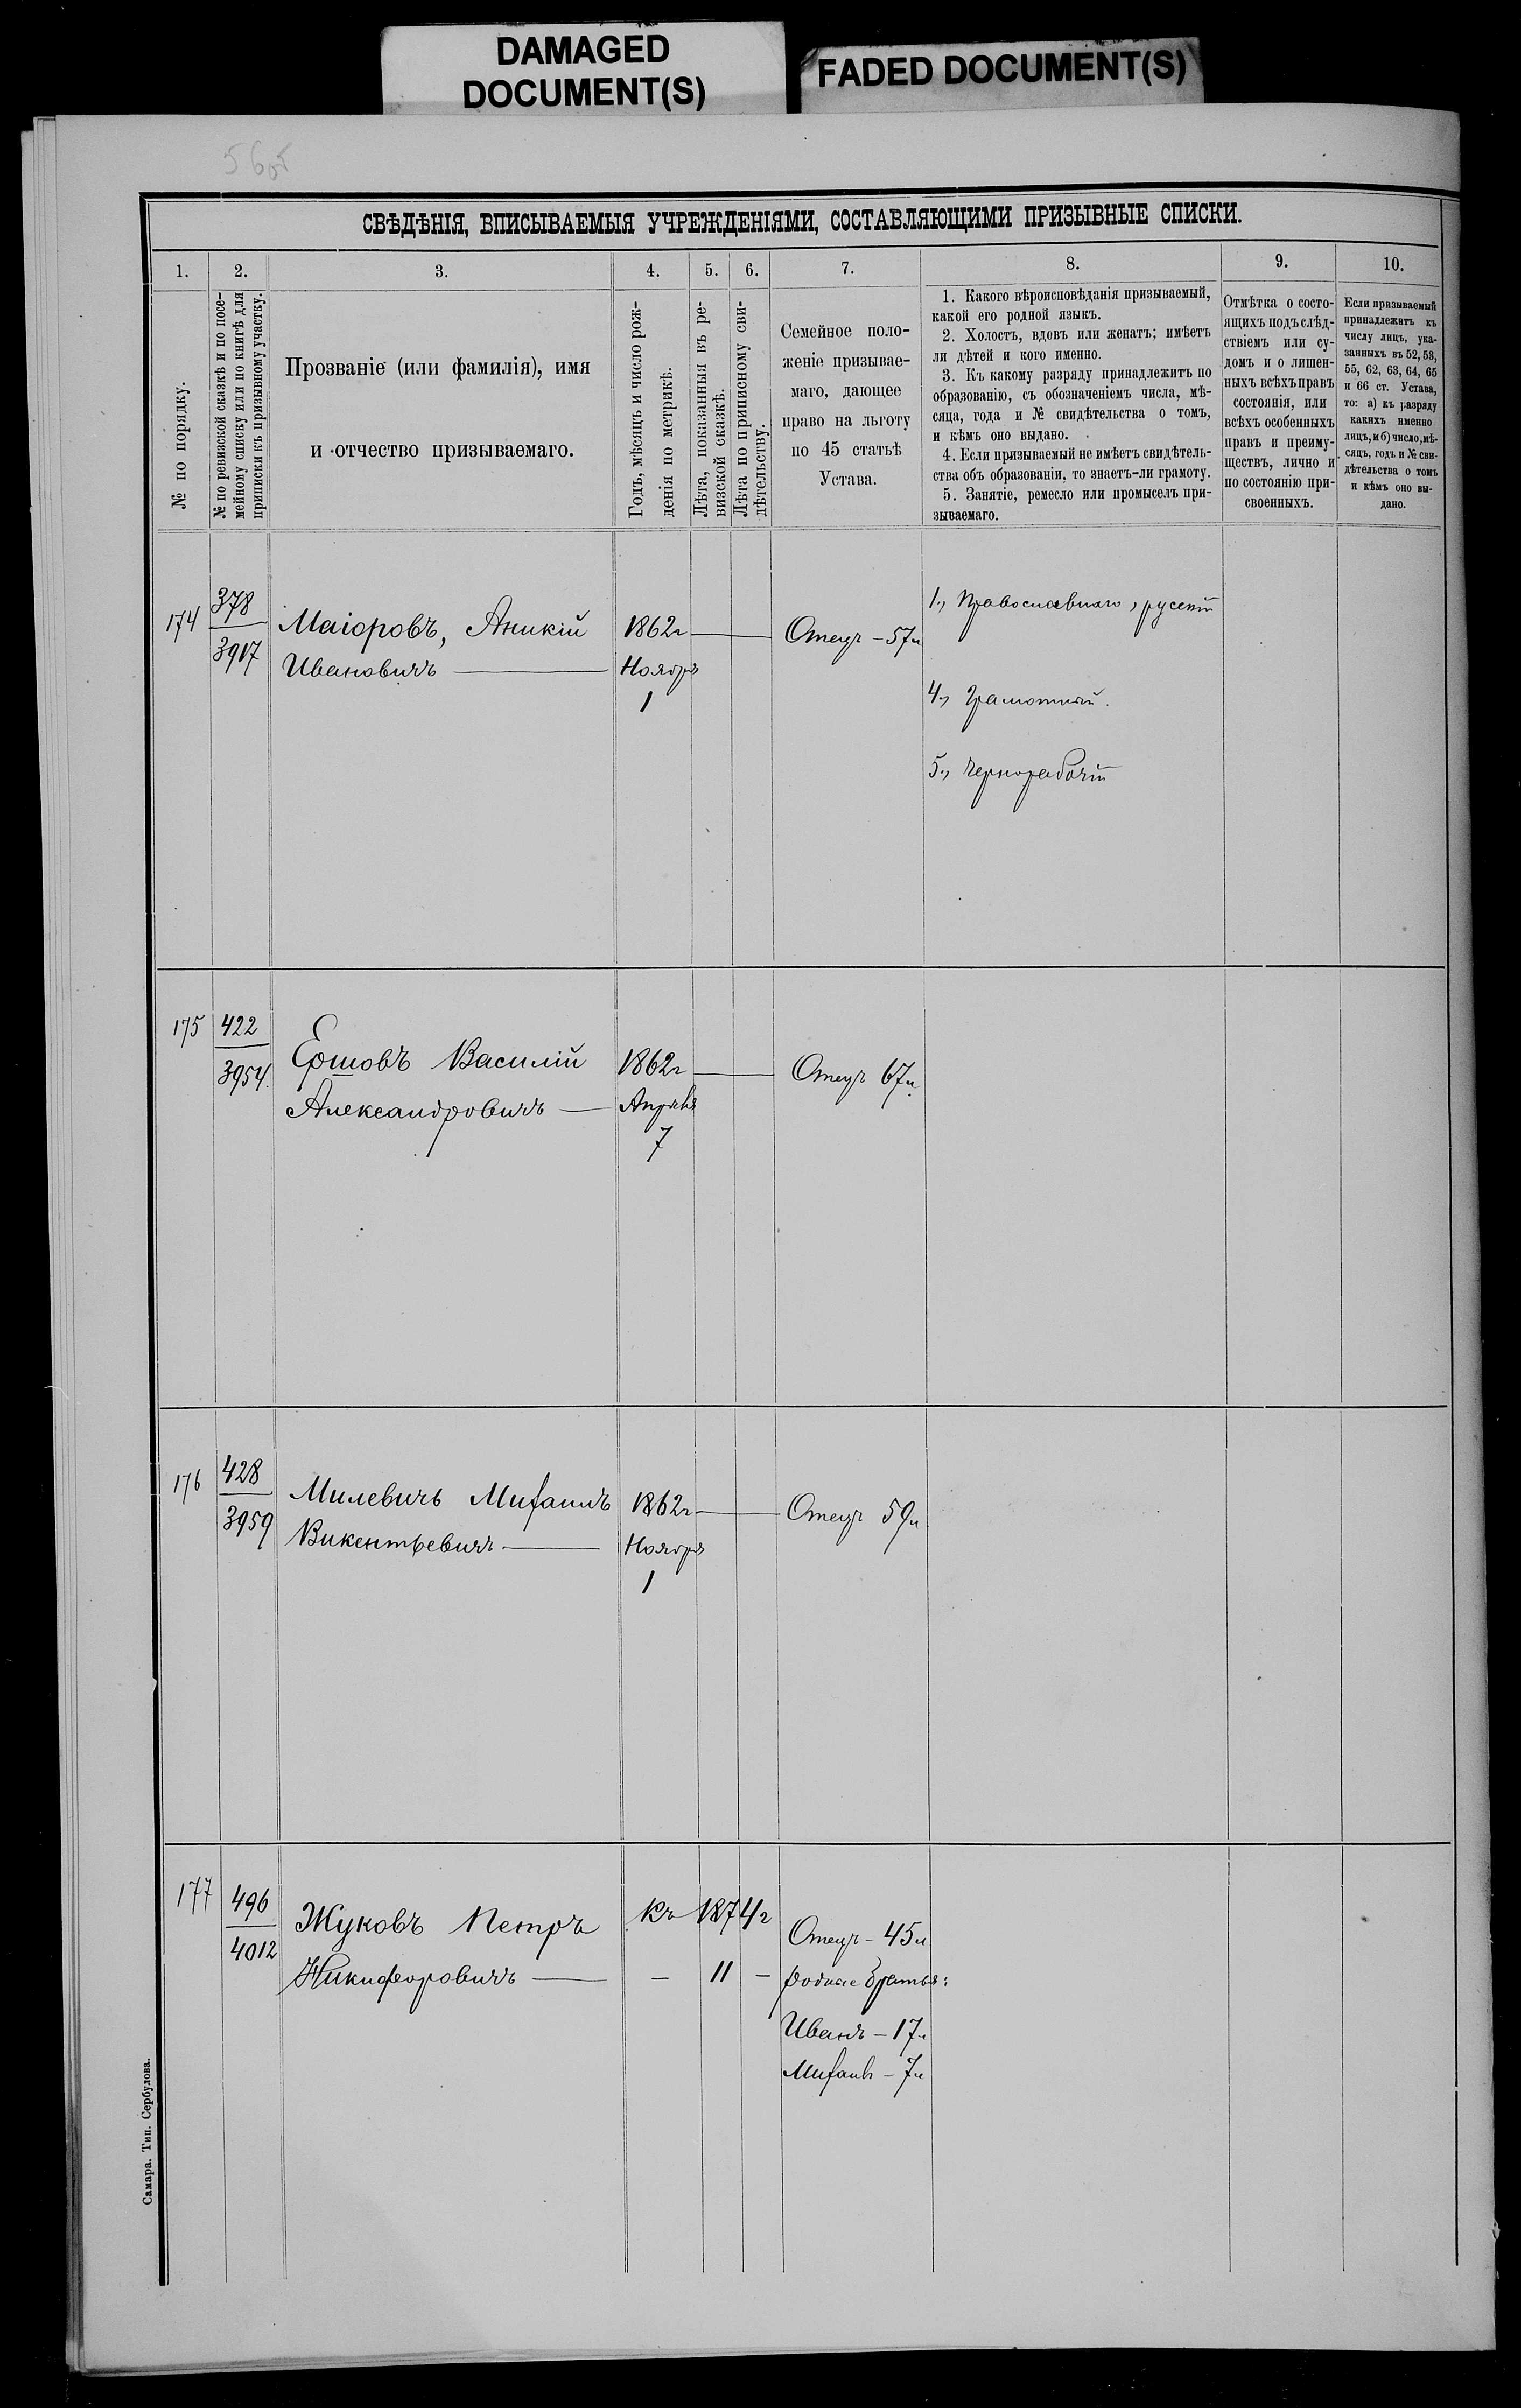 DAMAGED
DOCUMENT(S)
FADED DOCUMENT(S)
56об
СВѢДѢНІЯ, ВПИСЫВАЕМЫЯ УЧРЕЖДЕНІЯМИ, СОСТАВЛЯЮЩИМИ ПРИЗЫВНЫЕ СПИСКИ.
1. 2. 3. 4. 5. 6. 7. 8. 9. 10.
№ по порядку.
№ по ревизской сказкѣ и по посе-
мейному списку или по книгѣ для
приписки къ призывному участку.
Прозваніе (или фамилія), имя
и отчество призываемаго.
Годъ, мѣсяцъ и число рож-
денія по метрикѣ.
Лѣта, показанныя въ ре-
визской сказкѣ.
Лѣта по приписному сви-
дѣтельству.
Семейное поло-
женіе призывае-
маго, дающее
право на льготу
по 45 статьѣ
Устава.
1. Какого вѣроисповѣданія призываемый,
какой его родной языкъ.
2. Холостъ, вдовъ или женатъ; имѣетъ
ли дѣтей и кого именно.
3. Къ какому разряду принадлежитъ по
образованію, съ обозначеніемъ числа, мѣ-
сяца, года и № свидѣтельства о томъ,
и кѣмъ оно выдано.
4. Если призываемый не имѣетъ свидѣтель-
ства объ образованіи, то знаетъ-ли грамоту.
5. Занятіе, ремесло или промыселъ при-
зываемаго.
Отмѣтка о состо-
ящихъ подъ слѣд-
ствіемъ или су-
домъ и о лишен-
ныхъ всѣхъ правъ
состоянія, или
всѣхъ особенныхъ
правъ и преиму-
ществъ, лично и
по состоянію при-
своенныхъ.
Если призываемый
принадлежитъ къ
числу лицъ, ука-
занныхъ въ 52, 53,
55, 62, 63, 64, 65
и 66 ст. Устава,
то: а) къ разряду
какихъ именно
лицъ, и б) число, мѣ-
сяцъ, годъ и № сви-
дѣтельства о томъ
и кѣмъ оно вы-
дано.
174 378 Маіоровъ, Аникій 1862г Отецъ - 57л 1., Православнаго, русскій
3917 Ивановичъ Ноября
1
4., Грамотный.
5., Чернорабочій
175 422 Ершовъ Василій 1862г Отецъ 67л.
3954. Александровичъ Апрѣля
7
176 428 Милевичъ Михаилъ 1862г Отецъ 59л
3959 Викентьевичъ Ноября
1
177 496 Жуковъ Петръ Къ 1874г Отецъ - 45л
4012 Никифоровичъ — 11 — родные братья:
Иванъ - 17л
Михаилъ - 7л
Самара. Тип. Сербулова.